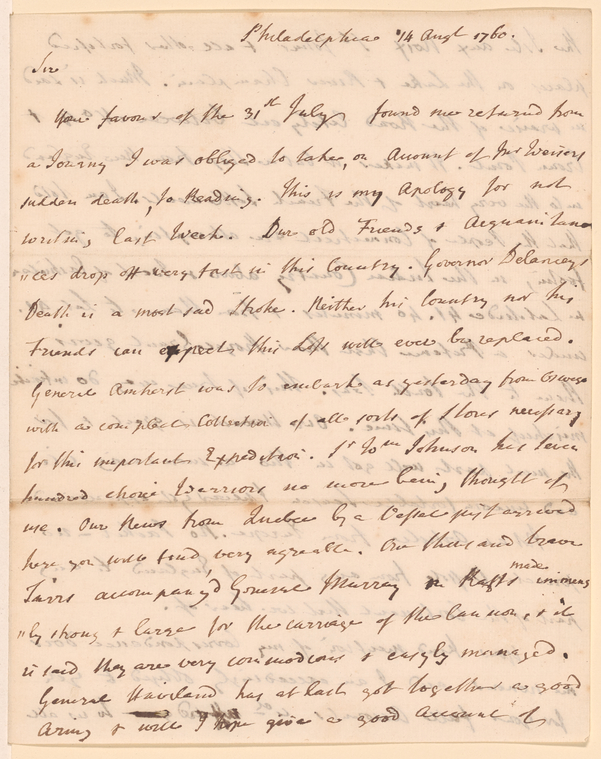 Philadelphia 14 Augt 1760.
Sir
Your favour of the 31st July found me returned from
a Journy I was obliged to take, on Account of Mr Weisers
sudden death, to Reading. This is my Apology for not
writing last Week. Our old Friends & Acquaintan
"ces drop off very fast in this Country. Governor Delanceys
Death is a most sad Stroke. Neither his Country nor his
Friends can expect this Loss will ever be replaced.
General Amherst was to embark as yesterday from Oswego
with a compleat Collection of all sorts of Stores necessary
for this important Expedition. Sr Wm Johnson has seven
hundred choice Warriors no more being thought of
use. Our News from Quebec by a Vessel just arrived
here you will find very agreable. One thousand brave
Tarrs accompany'd General Murray on Rafts made immens
"ly strong & large for the carriage of the Cannon, & it
is said they are very commodious & easyly managed.
General Haviland has at last got together a good
Army & will I hope give a good Account of